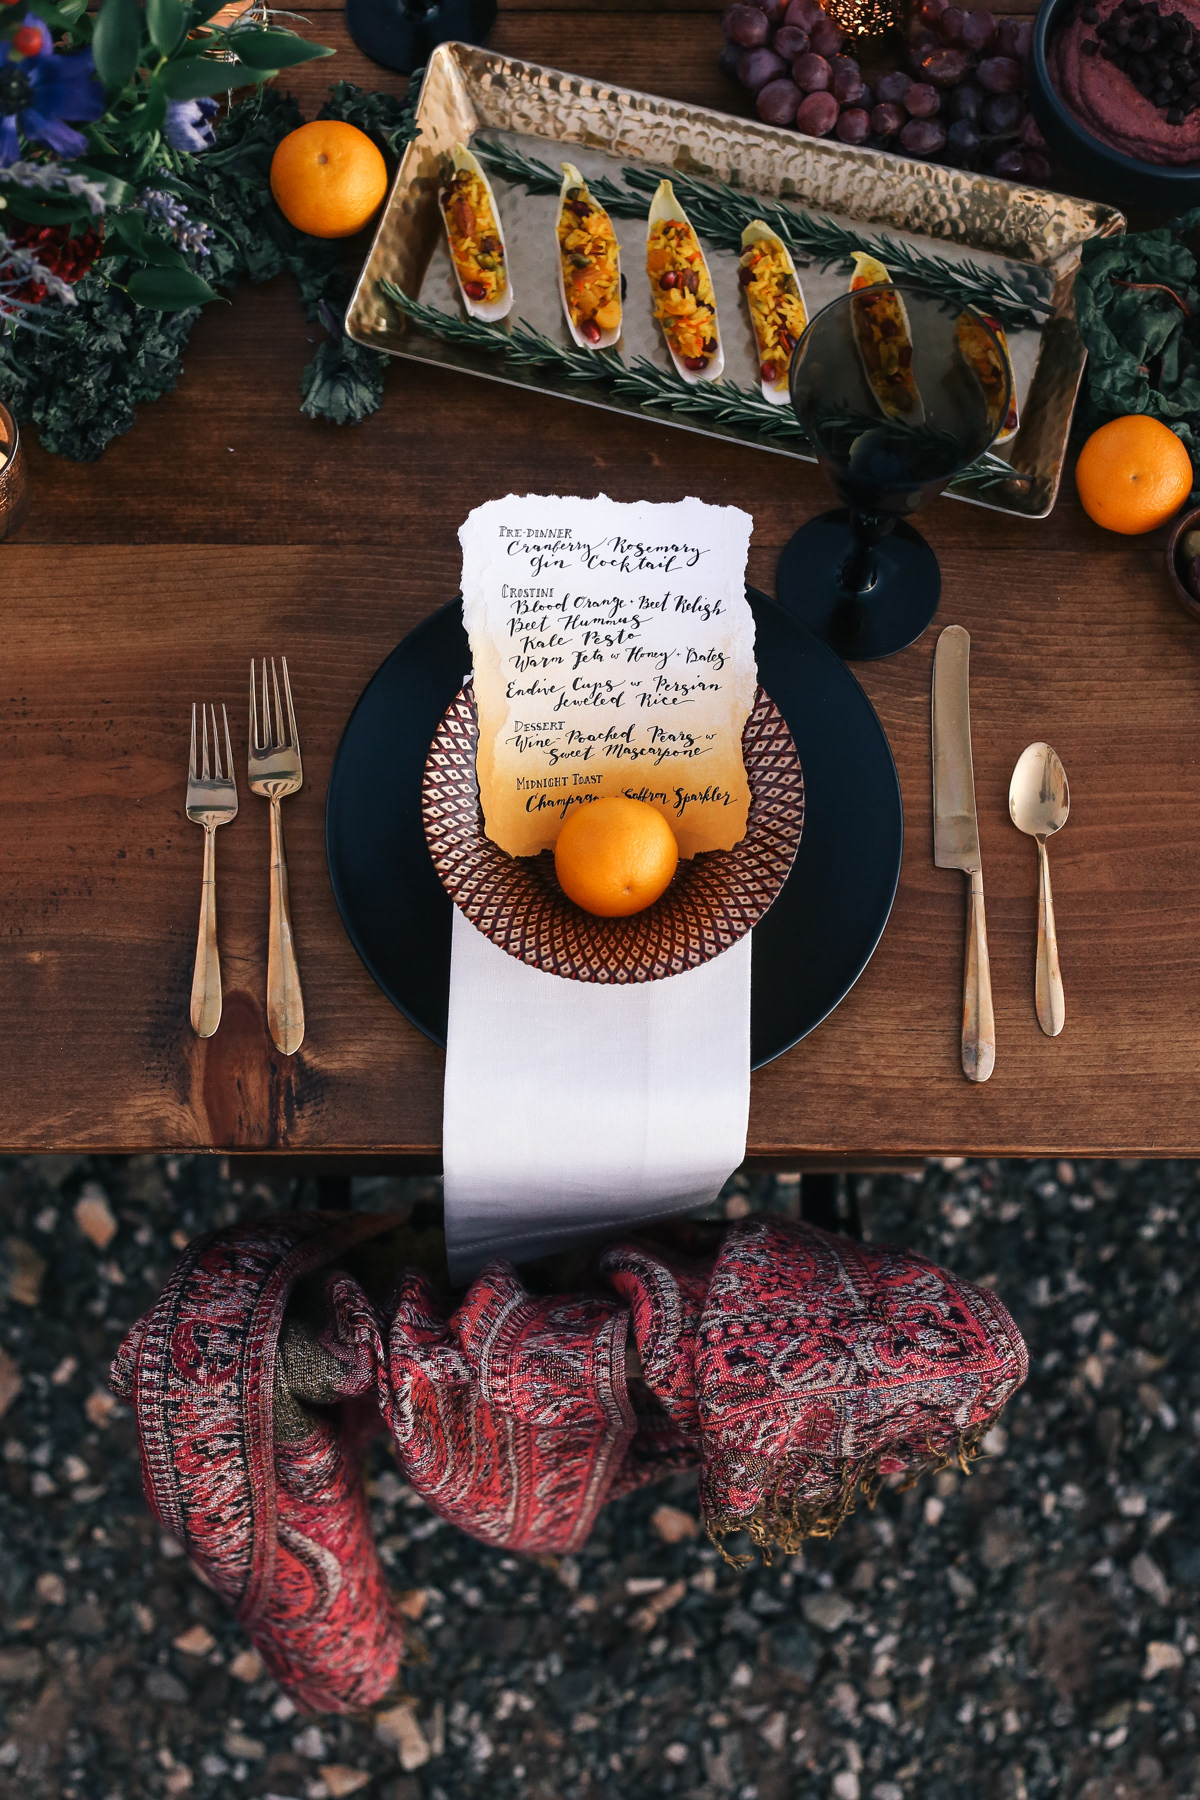 PRE-DINNER
Cranberry Rosemary
Gin Cocktail
CROSTINI
Blood Orange + Beet Relish
Beet Hummus
Kale Pesto
Warm Feta w Honey + Dates
Endive Cups w Persian
Jeweled Rice
DESSERT
Wine-Poached Pears w
Sweet Mascarpone
MIDNIGHT TOAST
Champagne Saffron Sparkler